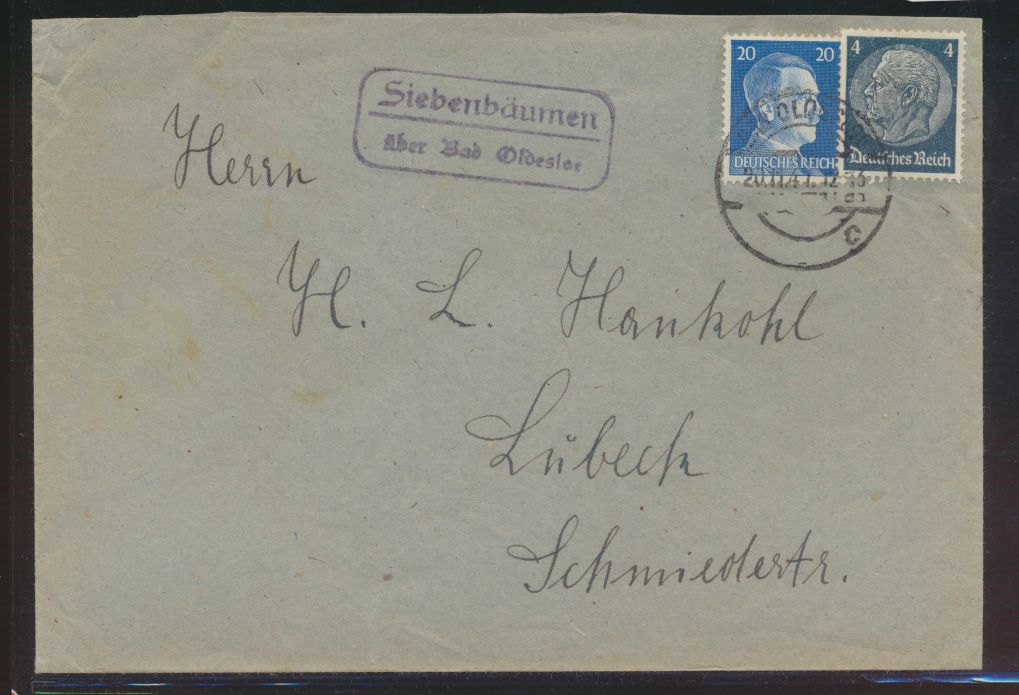 Siebenbäumen
über Bad Oldesloe
20 20
DEUTSCHES REICH
4 4
Deutsches Reich
OLD
20.11.41. 12
c
Herrn
H. L. Hankohl
Lübeck
Schmiedestr.